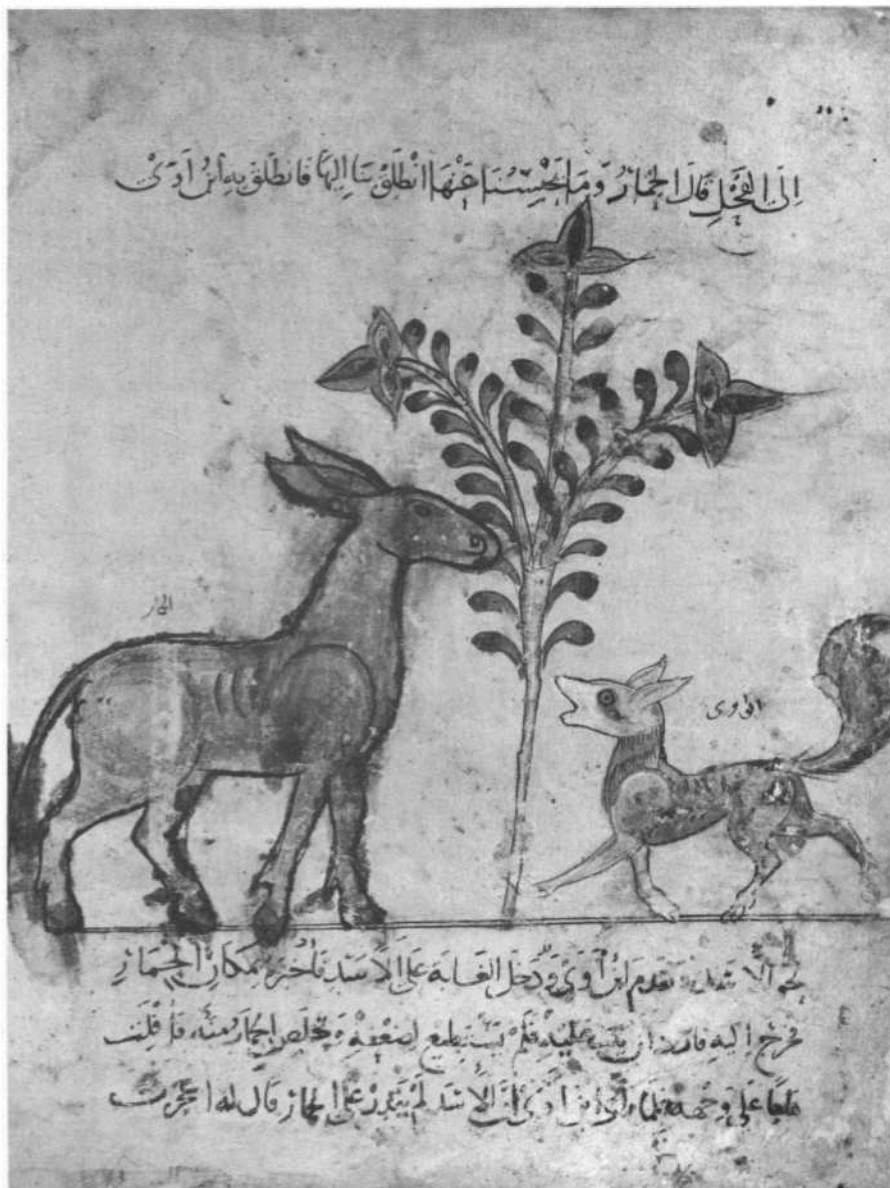 الى الفحل قال الحمار وما يحبسنا عنها انطلق بنا اليها فانطلق به ابن آوى
الحمار
ابن اوى
نحو الاسد وتقدم ابن آوى ودخل الغابة على الاسد فاخبره بمكان الحمار
فخرج اليه فاراد ان يثب عليه فلم يستطيع لضعفه وتخلص الحمار منه فافلت
هلعا على وجهه فلما رأى ابن آوى ان الاسد لم يقدر على الحمار قال له اعجزت